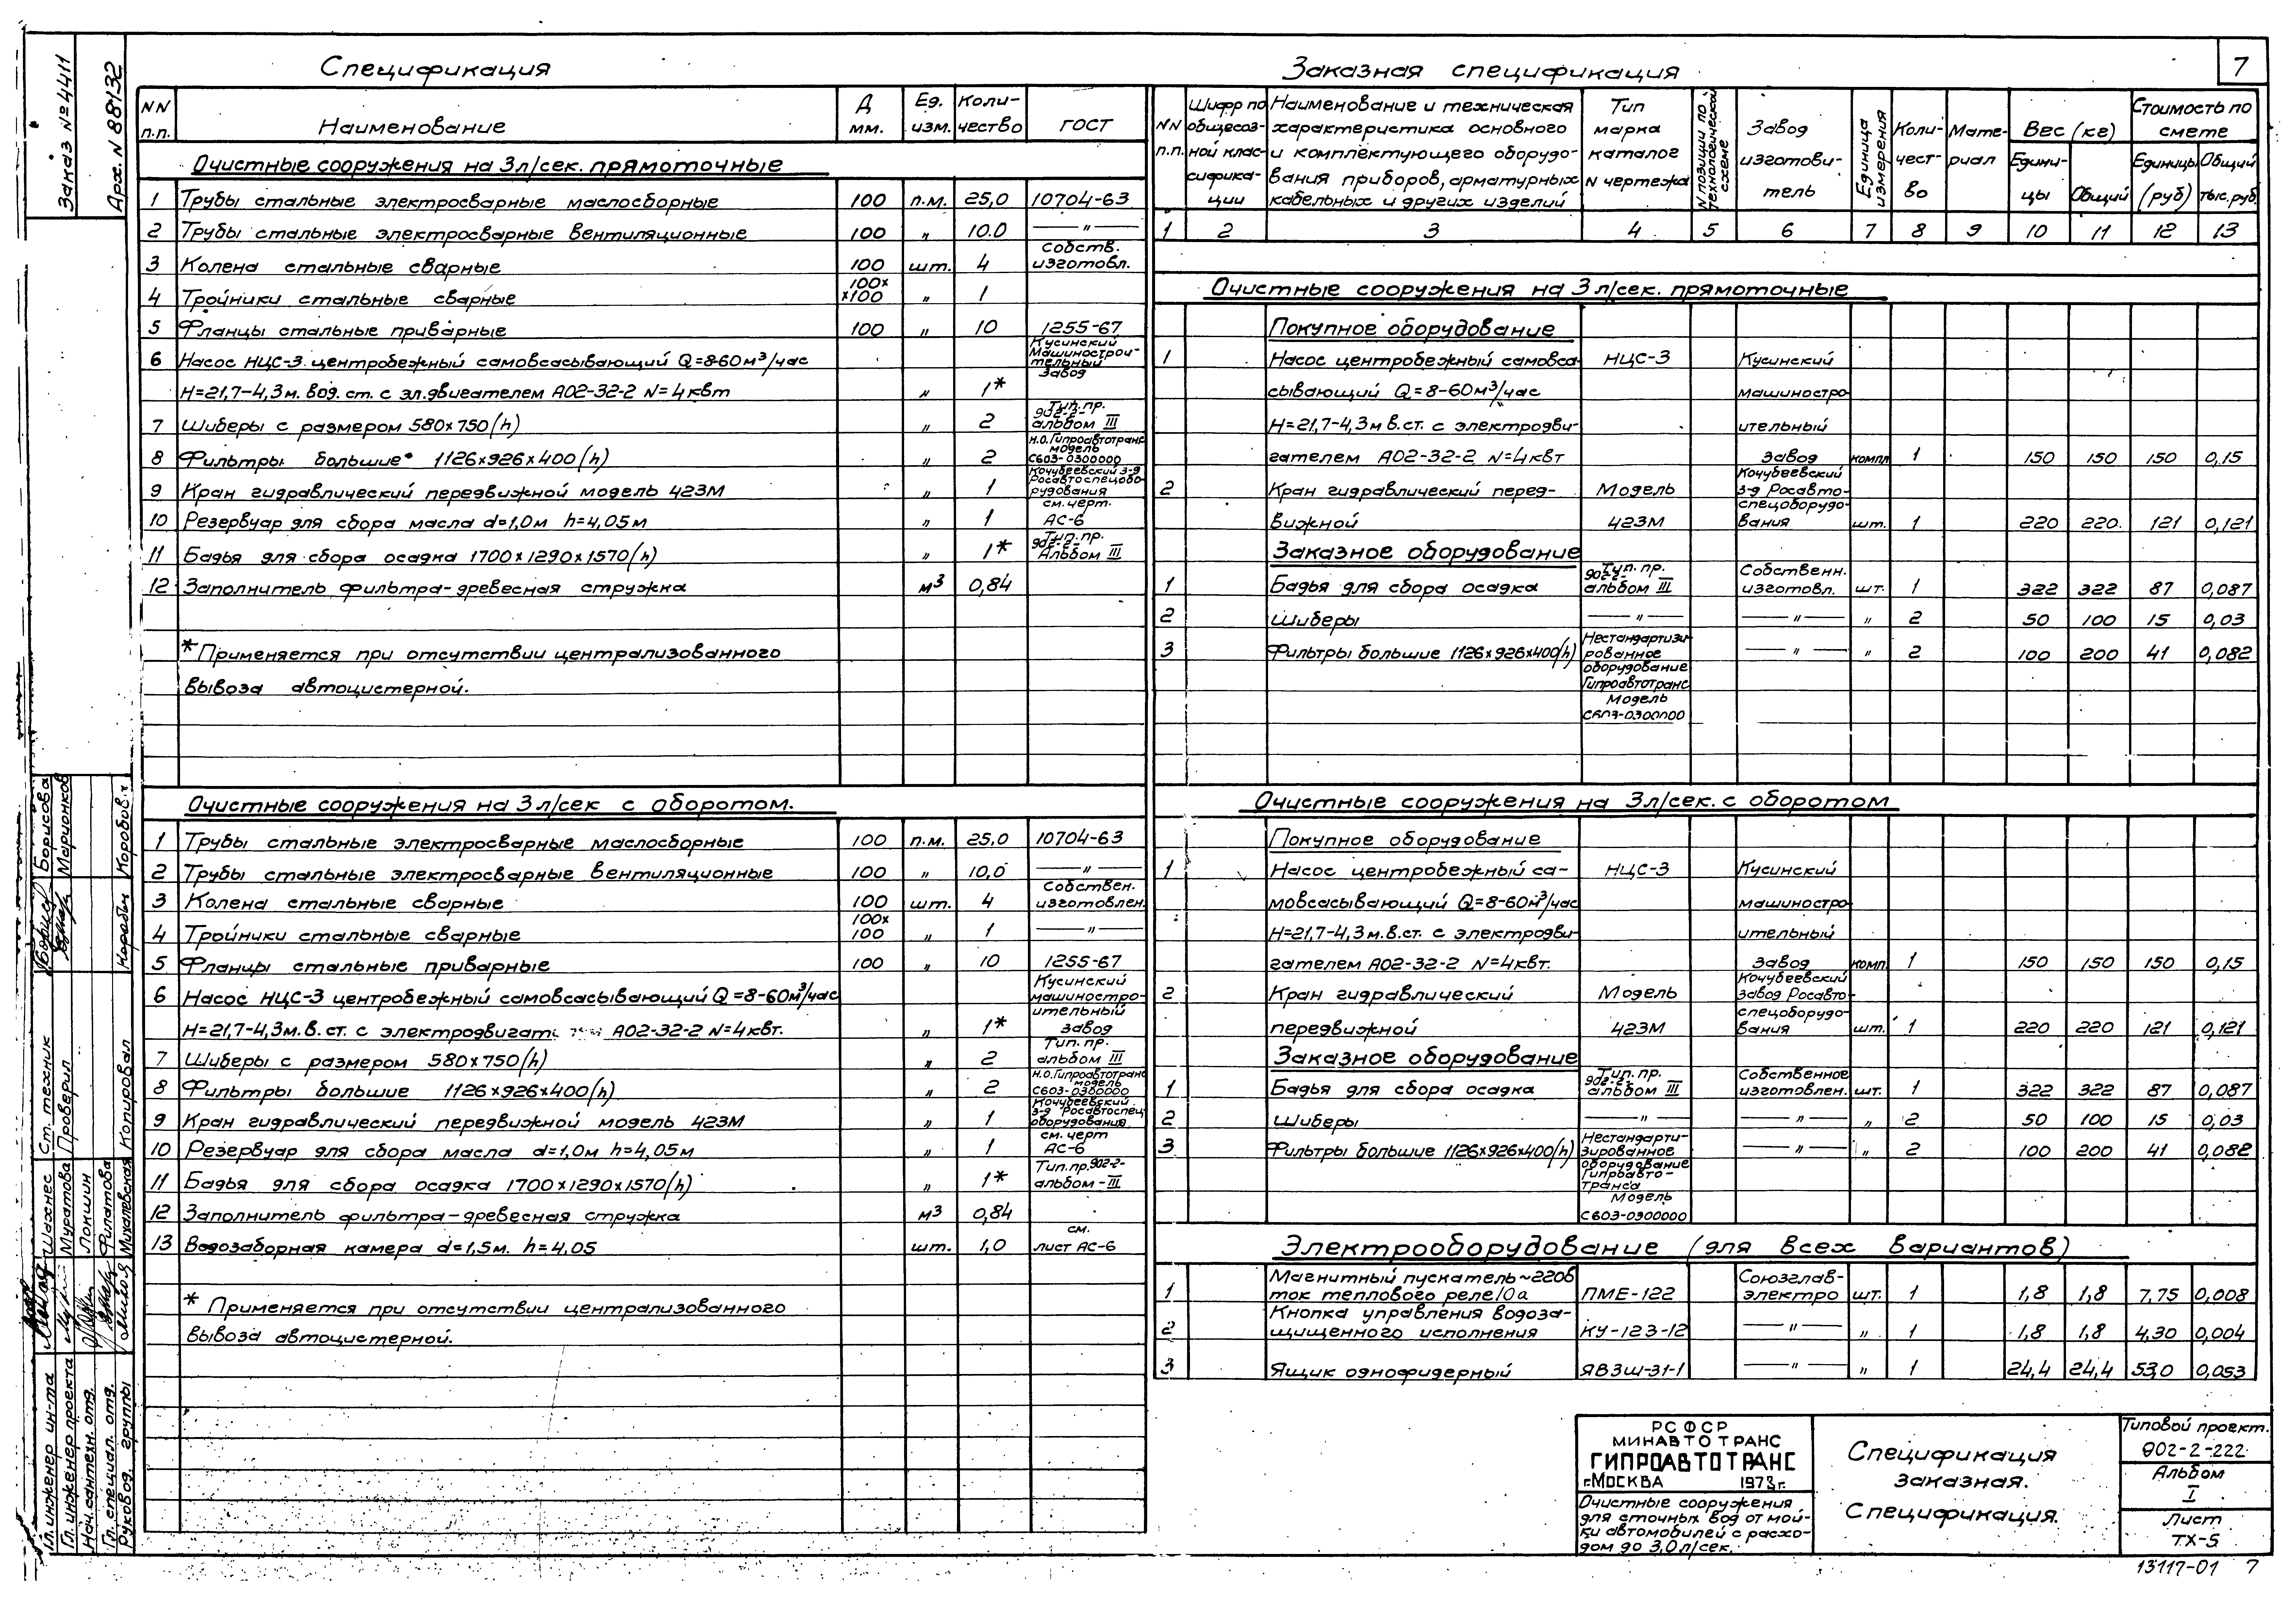 7
Заказ №4411
Арх. N 88132
Спецификация
NN п.п. Наименование Д мм. Ед. изм. Количество ГОСТ
Очистные сооружения на 3л/сек. прямоточные
1 Трубы стальные электросварные маслосборные 100 п.м. 25,0 10704-63
2 Трубы стальные электросварные вентиляционные 100 „ 10.0 —„—
3 Колена стальные сварные 100 шт. 4 Собств. изготовл.
4 Тройники стальные сварные 100х х100 „ 1
5 Фланцы стальные приварные 100 „ 10 1255-67
6 Насос НЦС-3 центробежный самовсасывающий Q=8-60м³/час Кусинский Машиностроительный завод
Н=21,7-4,3м. вод. ст. с эл.двигателем АО2-32-2 N=4квт „ 1*
7 Шиберы с размером 580х750(h) „ 2 Тип.пр. 902-2- альбом III
8 Фильтры большие 1126х926х400(h) „ 2 Н.О.Гипроавтотранс модель С603-0300000
9 Кран гидравлический передвижной модель 423М „ 1 Кочубеевский з-д Росавтоспецоборудования
10 Резервуар для сбора масла d=1,0м h=4,05м „ 1 см. черт. АС-6
11 Бадья для сбора осадка 1700х1290х1570(h) „ 1* Тип.пр. 902-2- Альбом III
12 Заполнитель фильтра-древесная стружка м³ 0,84
*Применяется при отсутствии централизованного
вывоза автоцистерной.
Очистные сооружения на 3л/сек с оборотом.
1 Трубы стальные электросварные маслосборные 100 п.м. 25,0 10704-63
2 Трубы стальные электросварные вентиляционные 100 „ 10,0 —„—
3 Колена стальные сварные 100 шт. 4 Собствен. изготовлен.
4 Тройники стальные сварные 100х 100 „ 1 —„—
5 Фланцы стальные приварные 100 „ 10 1255-67
6 Насос НЦС-3 центробежный самовсасывающий Q=8-60м³/час Кусинский машиностроительный завод
Н=21,7-4,3м.в.ст. с АО2-32-2 N=4квт. „ 1*
7 Шиберы с размером 580х750(h) „ 2 Тип. пр. альбом III
8 Фильтры большие 1126х926х400(h) „ 2 Н.О.Гипроавтотранс модель С603-0300000
9 Кран гидравлический передвижной модель 423М „ 1 Кочубеевский з-д Росавтоспецоборудования
10 Резервуар для сбора масла d=1,0м h=4,05м „ 1 см. черт АС-6
11 Бадья для сбора осадка 1700х1290х1570(h) „ 1* Тип.пр.902-2- альбом-III
12 Заполнитель фильтра-древесная стружка м³ 0,84
13 Водозаборная камера d=1,5м. h=4,05 шт. 1,0 см. лист АС-6
* Применяется при отсутствии централизованного
вывоза автоцистерной.
Заказная спецификация
NN п.п. Шифр по общесоюзной классификации Наименование и техническая характеристика основного и комплектующего оборудования приборов, арматурных кабельных и других изделий Тип марка каталог N чертежа N позиции по технологической схеме Завод изготовитель Единица измерения Количество Материал Вес (кг) Единицы Общий Стоимость по смете Единицы (руб) Общий тыс.руб.
1 2 3 4 5 6 7 8 9 10 11 12 13
Очистные сооружения на 3л/сек. прямоточные
Покупное оборудование
1 Насос центробежный самовса- НЦС-3 Кусинский
сывающий Q=8-60м³/час машиностро
Н=21,7-4,3м в.ст. с электродви- ительный
гателем АО2-32-2 N=4квт завод компл 1 150 150 150 0,15
2 Кран гидравлический перед- Модель Кочубеевский з-д Росавто-
вижной 423М спецоборудования шт. 1 220 220. 121 0,121
Заказное оборудование
1 Бадья для сбора осадка Тип. пр. 902-2- альбом III Собственн. изготовл. шт. 1 322 322 87 0,087
2 Шиберы —„— —„— „ 2 50 100 15 0,03
3 Фильтры большие 1126х926х400(h) Нестандартизированное оборудование Гипроавтотранс Модель С603-0300000 —„— „ 2 100 200 41 0,082
Очистные сооружения на 3л/сек. с оборотом
Покупное оборудование
1 Насос центробежный са- НЦС-3 Кусинский
мовсасывающий Q=8-60м³/час машиностро
Н=21,7-4,3м.в.ст. с электродви- ительный
гателем АО2-32-2 N=4квт. завод комп. 1 150 150 150 0,15
2 Кран гидравлический Модель Кочубеевский завод Росавто-
передвижной 423М спецоборудования шт. 1 220 220 121 0,121
Заказное оборудование
1 Бадья для сбора осадка Тип. пр. 902-2- альбом III Собственное изготовлен. шт. 1 322 322 87 0,087
2 Шиберы —„— —„— „ 2 50 100 15 0,03
3 Фильтры большие 1126х926х400(h) Нестандартизированное оборудование Гипроавтотранса Модель С603-0300000 —„— „ 2 100 200 41 0,082
Электрооборудование (для всех вариантов)
1 Магнитный пускатель ~220в ток теплового реле 10а ПМЕ-122 Союзглавэлектро шт. 1 1,8 1,8 7,75 0,008
2 Кнопка управления водозащищенного исполнения КУ-123-12 —„— „ 1 1,8 1,8 4,30 0,004
3 Ящик однофидерный ЯВЗШ-31-1 —„— „ 1 24,4 24,4 53,0 0,053
РСФСР
МИНАВТОТРАНС
ГИПРОАВТОТРАНС
г.МОСКВА 1973г.
Очистные сооружения
для сточных вод от мой-
ки автомобилей с расхо-
дом до 3,0л/сек.
Спецификация
заказная.
Спецификация.
Типовой проект.
902-2-222
Альбом
I
Лист
ТХ-5
13117-01 7
Гл.инженер ин-та Шахнес Ст. техник Борисова
Гл.инженер проекта Муратова Проверил Марчонков
Нач.сантехн.отд. Локшин
Гл. специал. отд. Филатова
Руковод. группы Михалевская Копировал